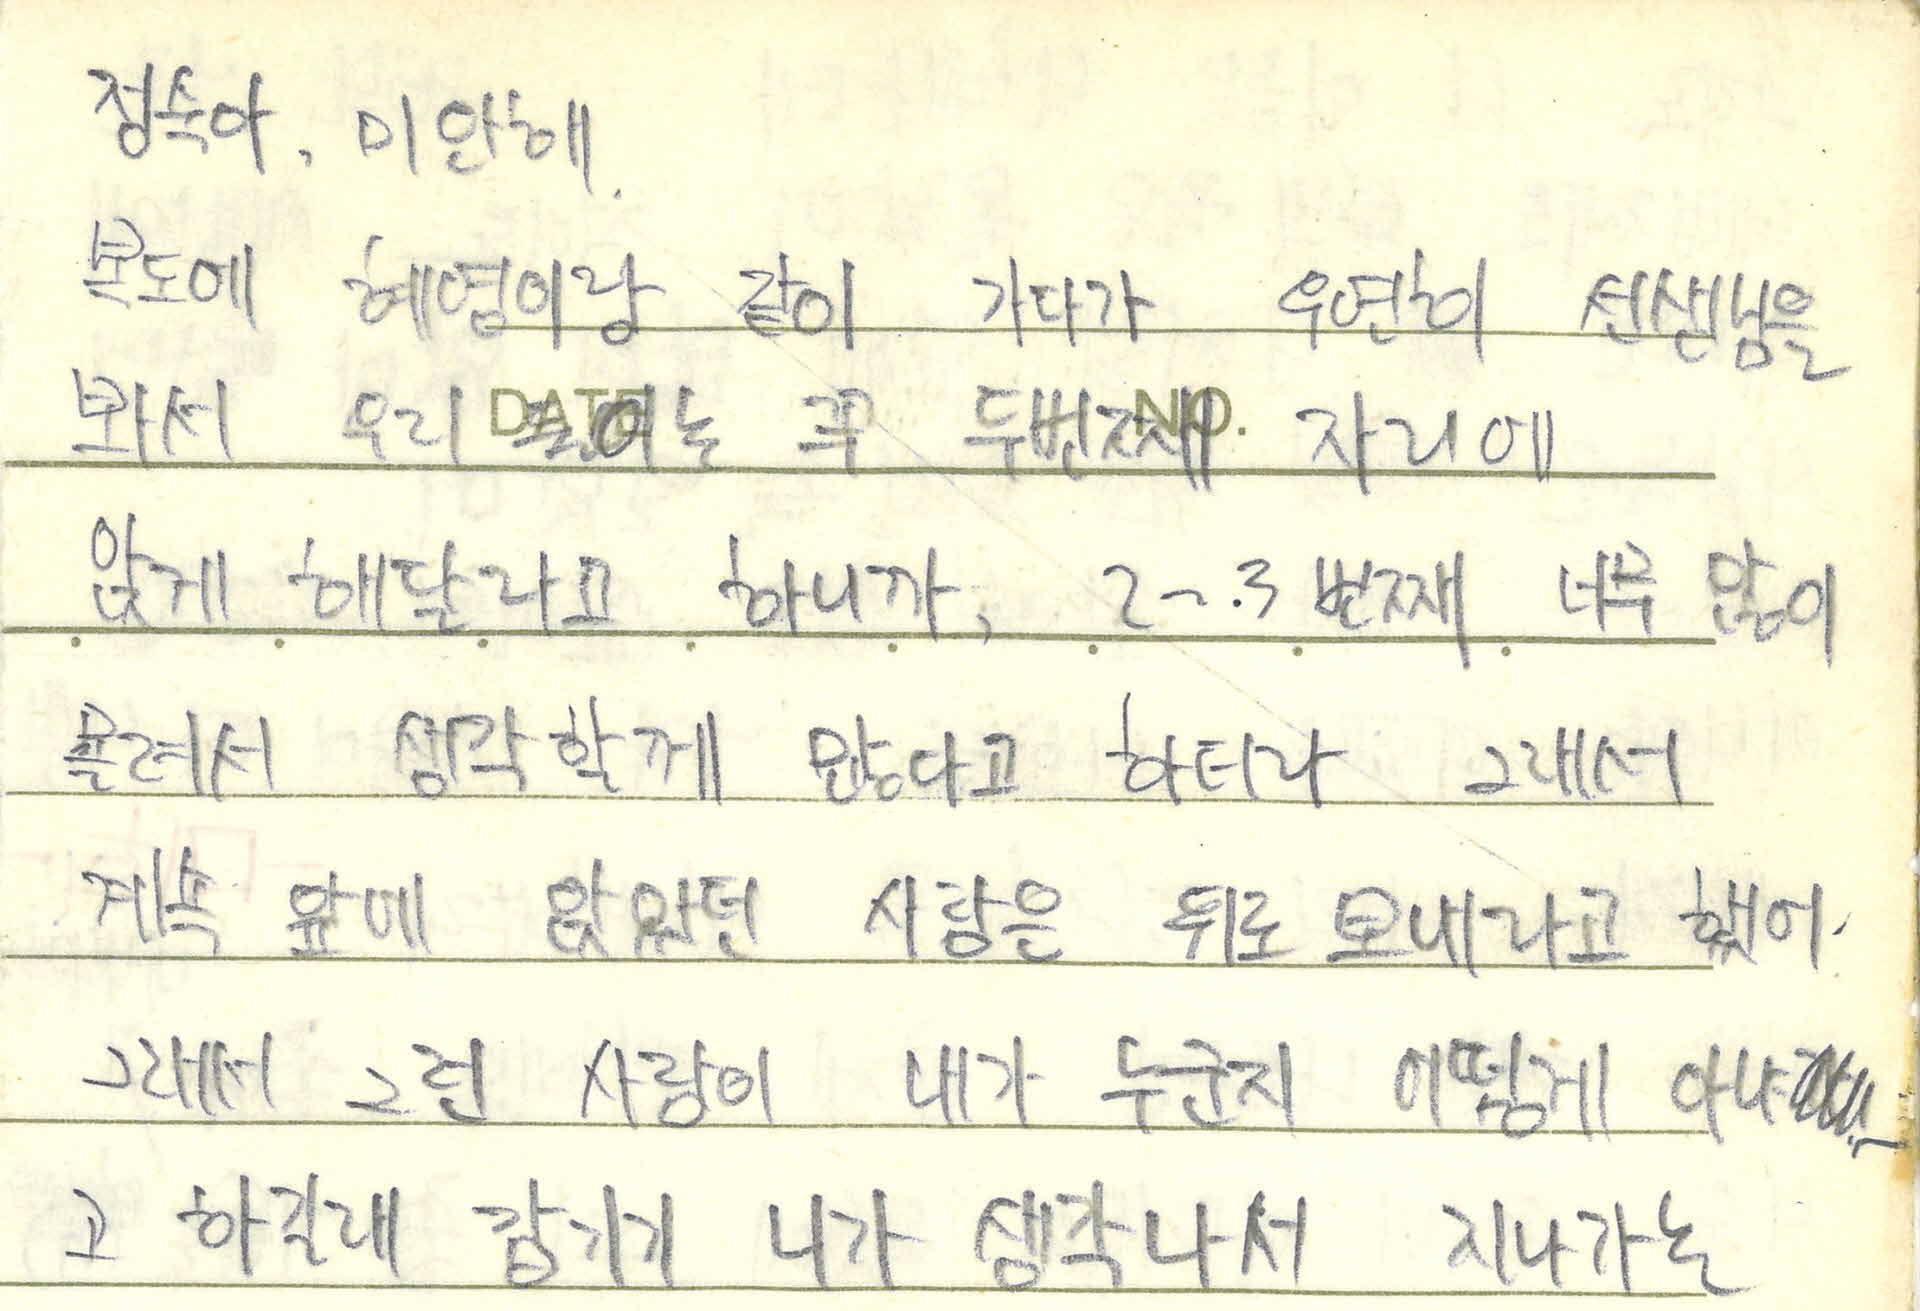 정숙아, 미안해.
복도에 혜영이랑 같이 가다가 우연히 선생님을
봐서 우리 둘이는 꼭 두번째 자리에
DATE NO.
앉게 해달라고 하니까, 2~3번째 너무 많이
몰려서 생각할게 많다고 하더라 그래서
계속 앞에 앉았던 사람은 뒤로 보내라고 했어.
그래서 그런 사람이 내가 누군지 어떻게 아냐
고 하길래 갑자기 니가 생각나서 지나가는